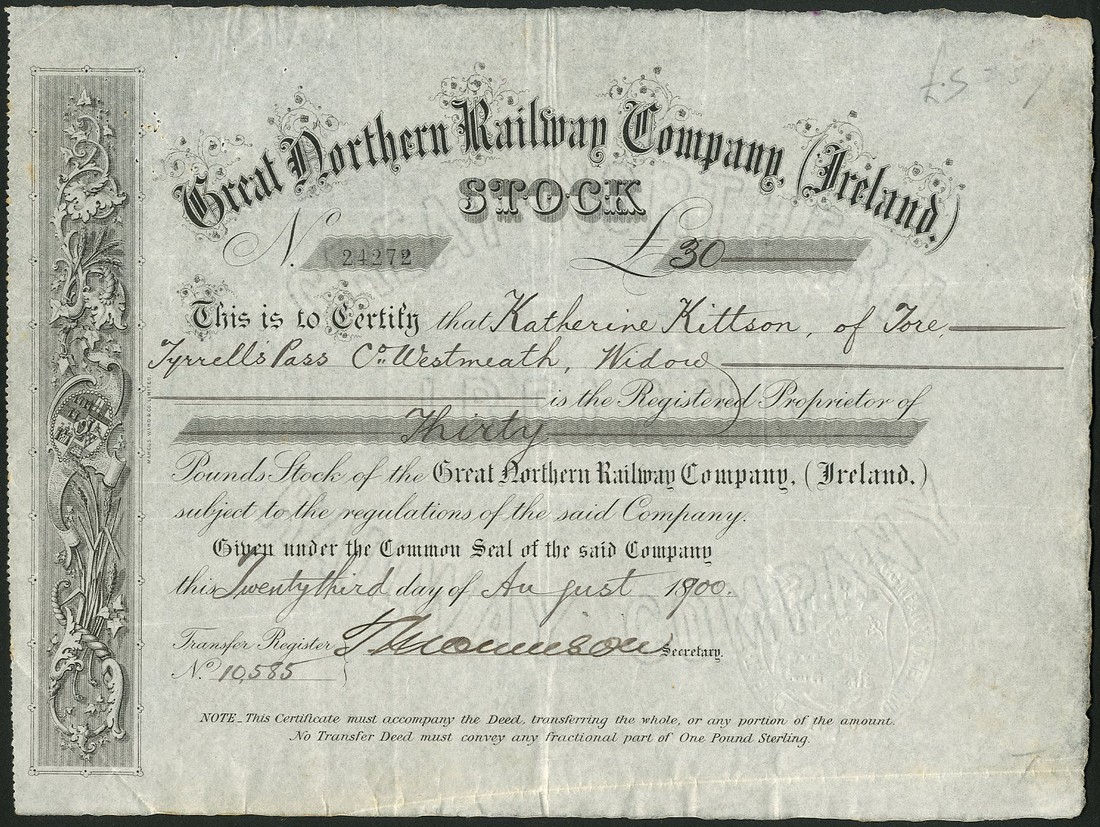 Great Northern Railway Company, (Ireland.)
STOCK
No. 24272 £30
This is to Certify that Katherine Kittson, of Tore,
Tyrrell's Pass Co. Westmeath, Widow
is the Registered Proprietor of
Thirty
Pounds Stock of the Great Northern Railway Company, (Ireland.)
subject to the regulations of the said Company.
Given under the Common Seal of the said Company
this Twentythird day of August 1900.
Transfer Register Secretary.
No. 10,585
NOTE_This Certificate must accompany the Deed, transferring the whole, or any portion of the amount.
No Transfer Deed must convey any fractional part of One Pound Sterling.
MARCUS WARD & CO. LIMITED